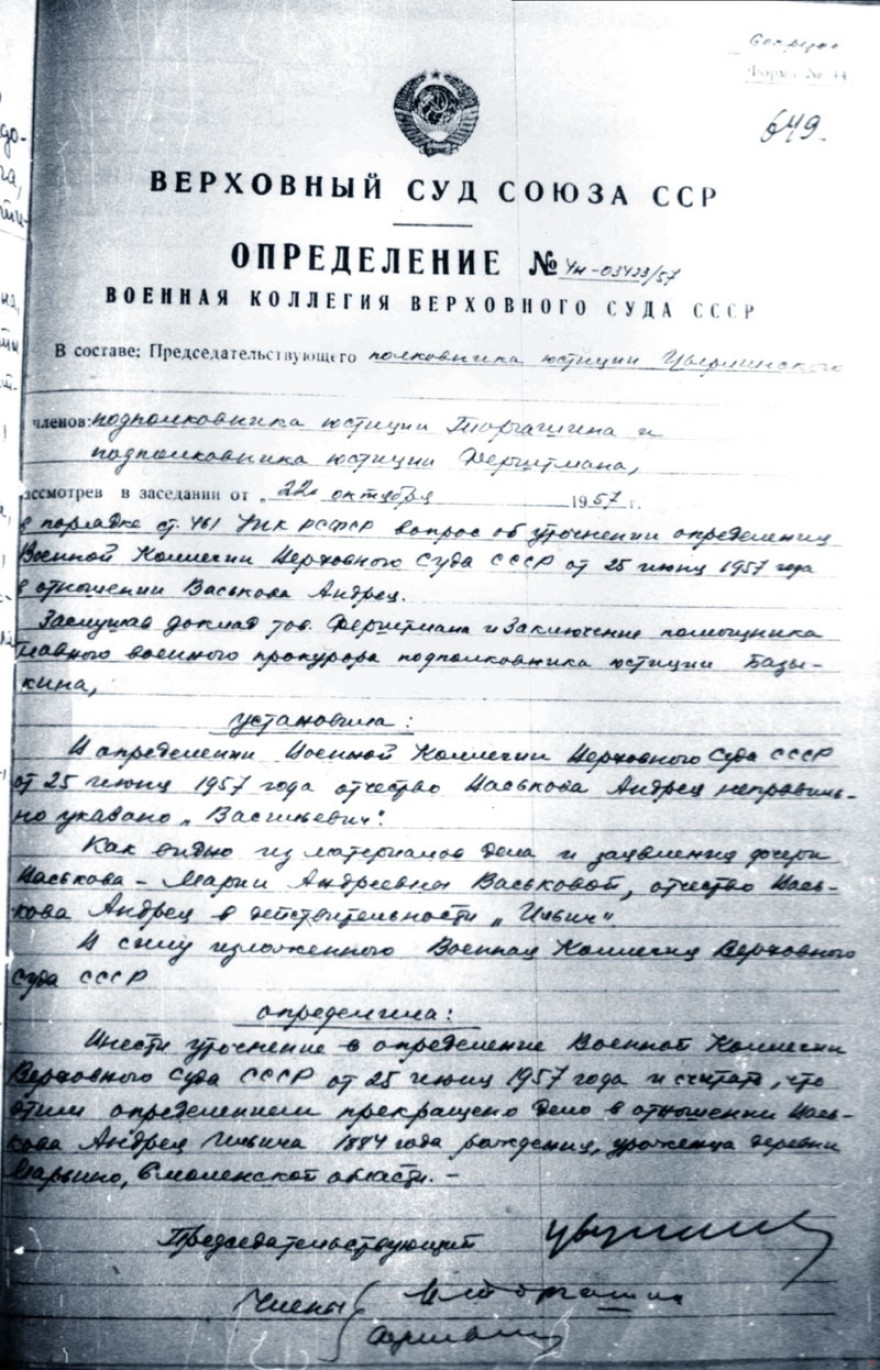 Секретно
Форма № 14
649.
ВЕРХОВНЫЙ СУД СОЮЗА ССР
ОПРЕДЕЛЕНИЕ № 4н-03423/57
ВОЕННАЯ КОЛЛЕГИЯ ВЕРХОВНОГО СУДА СССР
В составе: Председательствующего полковника юстиции
членов: подполковника юстиции Торгашина и
подполковника юстиции Ферштмана,
ассмотрев в заседании от „22" октября 1957 г.
в порядке ст. 461 УПК РСФСР вопрос об уточнении определения
Военной Коллегии Верховного Суда СССР от 25 июня 1957 года
в отношении Васькова Андрея.
Заслушав доклад тов. Ферштмана и заключение помощника
главного военного прокурора подполковника юстиции Базы-
кина,
установила:
В определении Военной Коллегии Верховного Суда СССР
от 25 июня 1957 года отчество Васькова Андрея неправиль-
но указано „Васильевич".
Как видно из материалов дела и заявления дочери
Васькова - Марии Андреевны Васьковой, отчество Вась-
кова Андрея в действительности „Ильич".
В силу изложенного Военная Коллегия Верховного
Суда СССР
определила:
Внести уточнение в определение Военной Коллегии
Верховного Суда СССР от 25 июня 1957 года и считать, что
этим определением прекращено дело в отношении Вась-
кова Андрея Ильича 1884 года рождения, уроженца деревни
Марьино, Смоленской области. -
Председательствующий
Члены